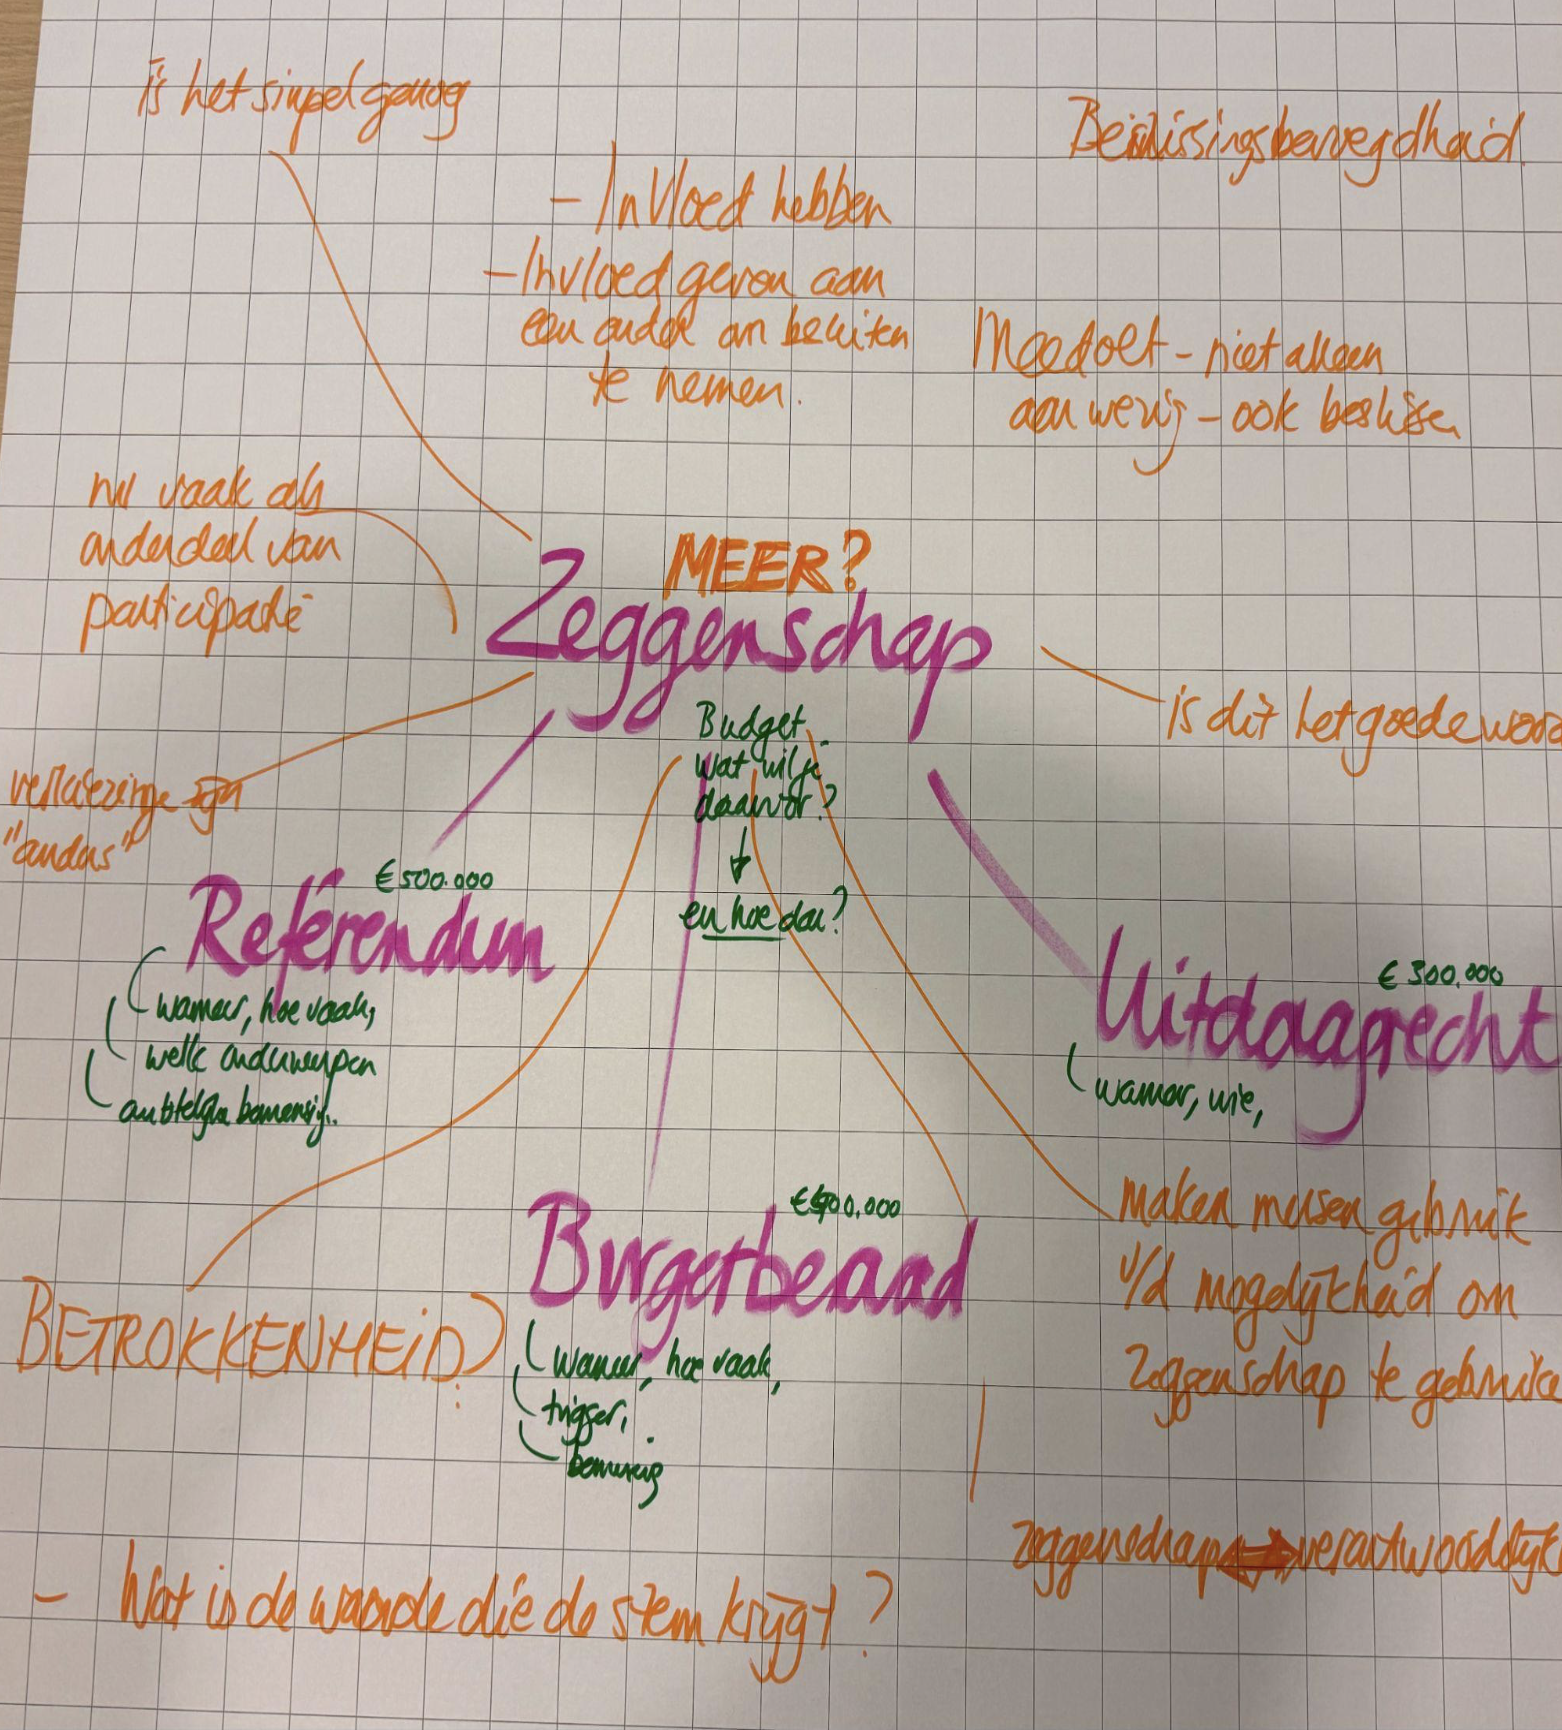 is het simpel genoeg
Beslissingsbevoegdheid.
- Invloed hebben
- Invloed geven aan
een ander om besluiten
te nemen.
Meedoet - niet alleen
aanwezig - ook beslissen
nu vaak als
onderdeel van
participatie
MEER?
Zeggenschap
is dit het goede woord
Budget
wat wil je
daarvoor?
en hoe dan?
verkiezingen zijn
"anders"
€ 500.000
Referendum
wanneer, hoe vaak,
welke onderwerpen
ambtelijke bemensing..
€ 300.000
Uitdaagrecht
wanneer, wie,
Burgerberaad
wanneer, hoe vaak,
trigger,
bemensing
maken mensen gebruik
v/d mogelijkheid om
zeggenschap te gebruike
BETROKKENHEID?
zeggenschap verantwoordelijk
- Wat is de waarde die de stem krijgt?